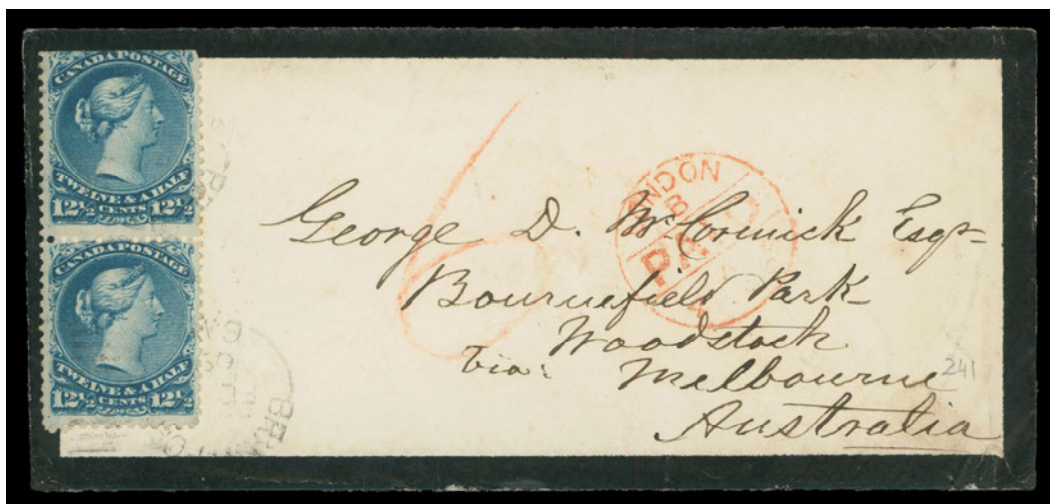 CANADA POSTAGE
TWELVE & A HALF
12½ CENTS 12½
CANADA POSTAGE
TWELVE & A HALF
12½ CENTS 12½
6
LONDON
George D. McCormick Esqr
Bournefield Park
Woodstock
Via: Melbourne
Australia
241